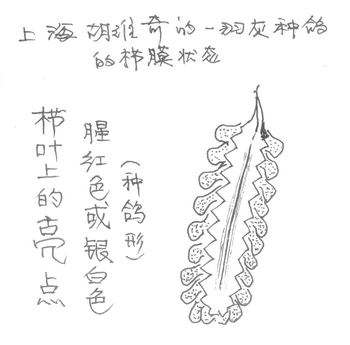 上海胡维奇的一羽灰种鸽
的栉膜状态
栉叶上的亮点
腥红色或银白色
(种鸽形)